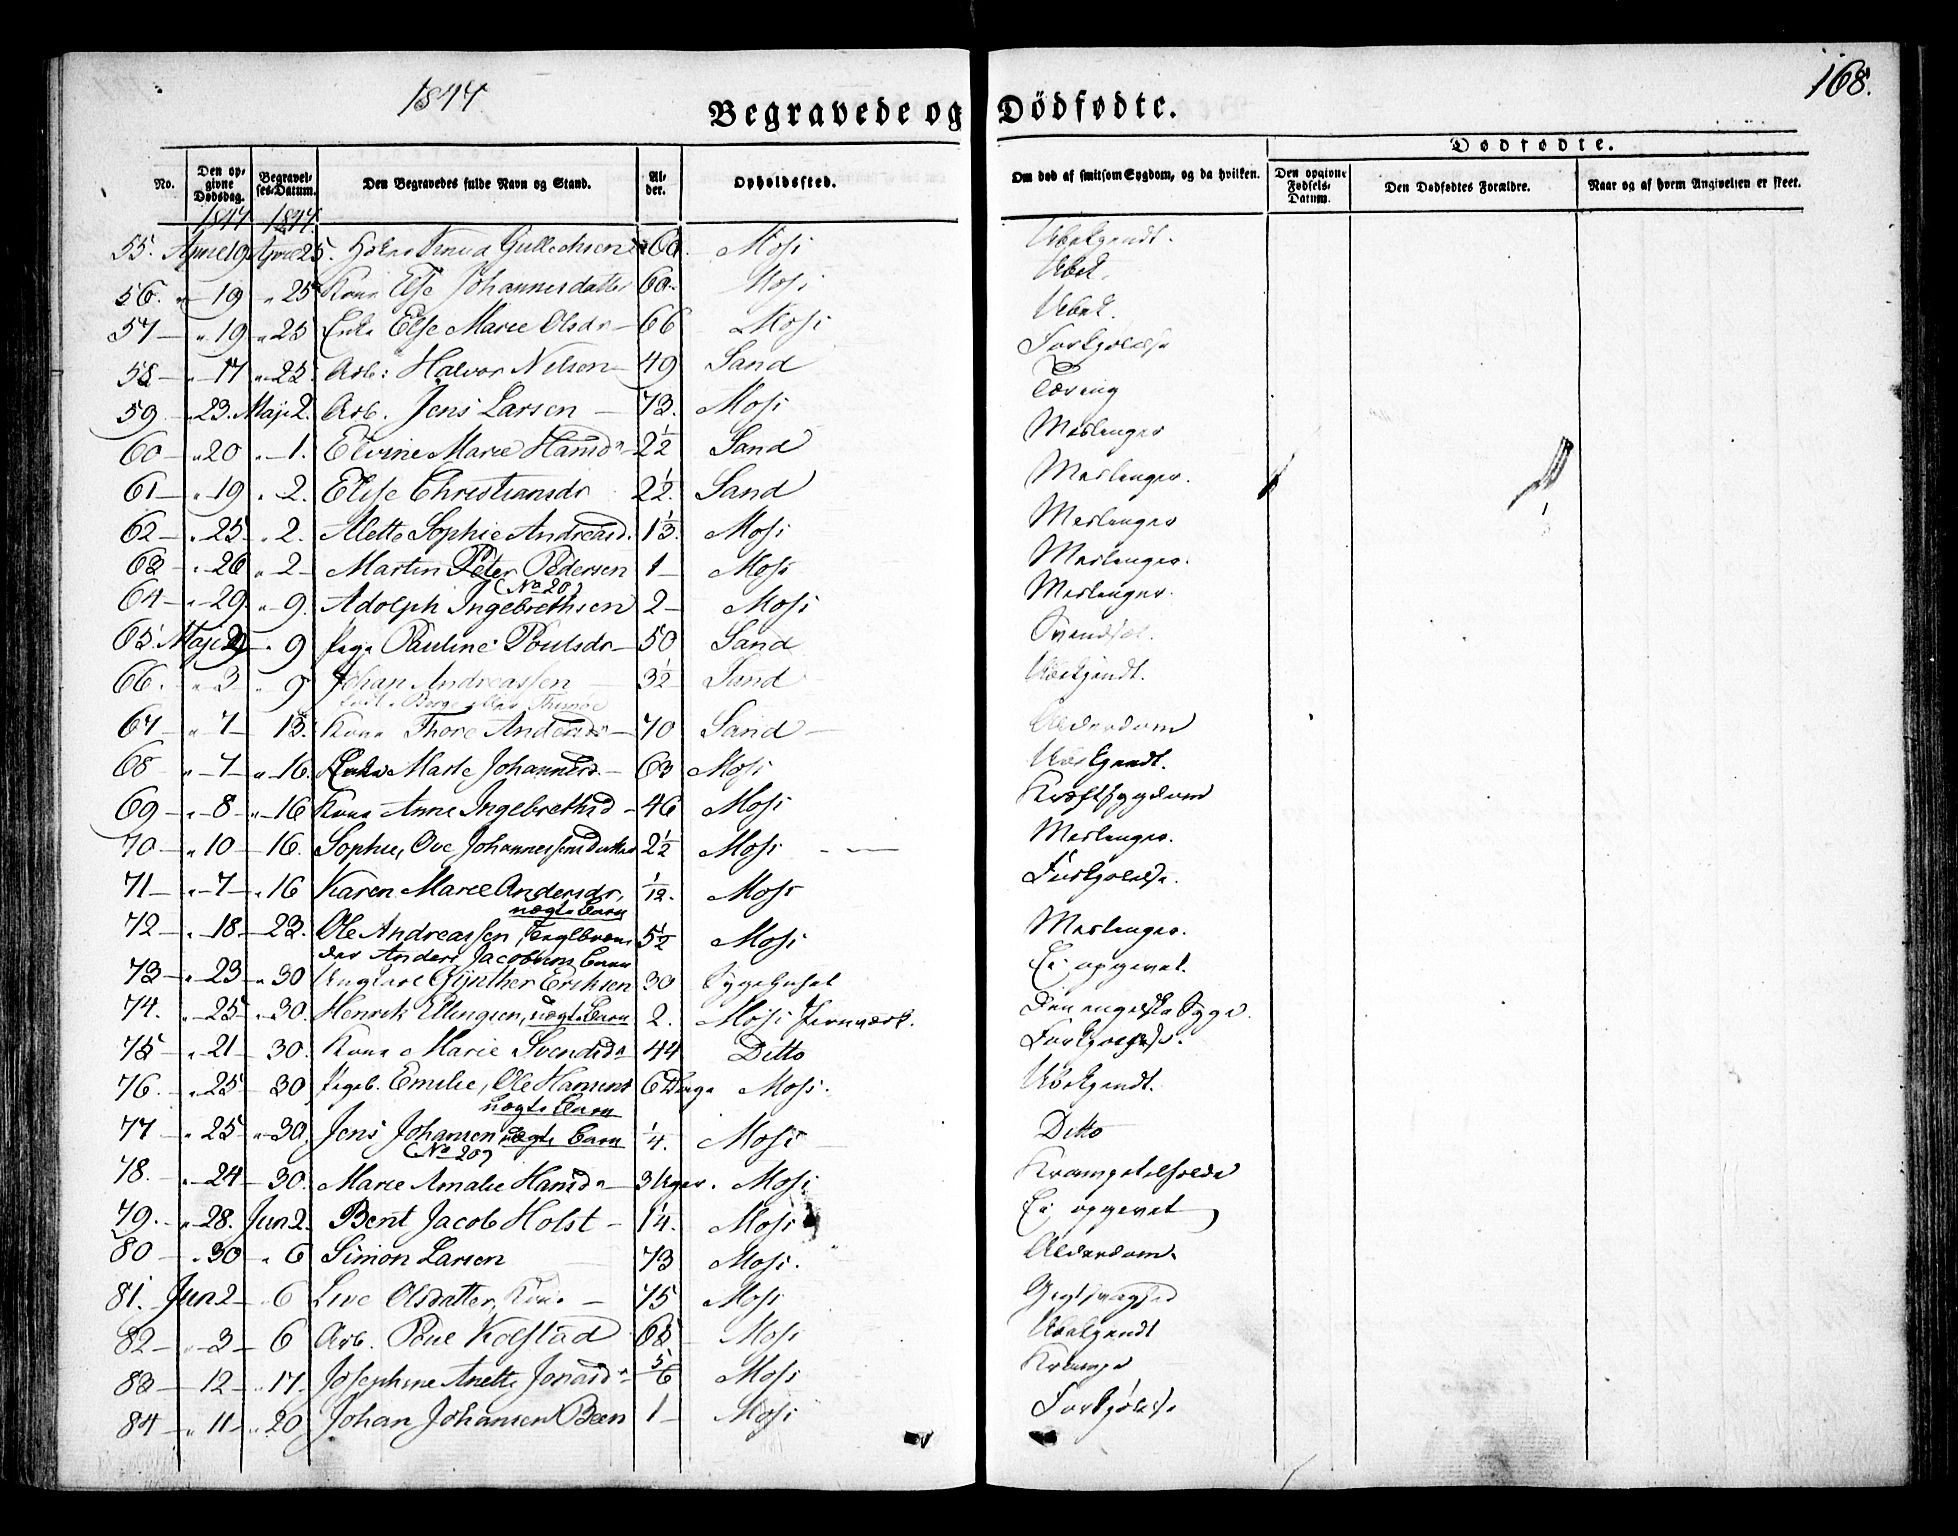 1844.
168.
Begravede og Dödfødte.
Dødfødte.
No.
Den opgivne Dødsdag.
Begravelses-Datum.
Den Begravedes fulde Navn og Stand.
Alder.
Opholdssted.
Om død af smitsom Sygdom, og da hvilken.
Den opgivne Fødsels-Datum.
Den Dødfødtes Forældre.
Naar og af hvem Angivelsen er skeet.
1844 1844.
55. April 19 April 25. Gullichsen 60. Moss Ubekjendt.
56. " 19 " 25 Kone Else Johannesdatter 60. Moss Ubek.
57 " 19 " 25 Enke Else Marie Olsdr 66 Moss Ubek.
58 " 17 " 25. Arb: Halvor Nilsen 49 Sand Forkjølelse
59 " 23. Maji 2. Arb. Jens Larsen 73. Moss Tæring
60 " 20 " 1. Elvine Marie Hansd 2½ Sand Meslinger
61 " 19 " 2. Else Christiansdr 2½ Sand Meslinger.
62 " 25 " 2. Alette Sophie Andreasd. 1⅓. Moss Meslinger
63 " 26 " 2 Martin Peter Pedersen 1 Moss Meslinger.
(No 20)
64 " 29. " 9. Adolph Ingebrethsen 2 Moss Meslinger.
65. Maji " 9 Pige Pauline Poulsdr 50 Sand
66. " 3 " 9 Johan Andreassen 3½ Sand Ubekjendt.
67 " 7 13. Kone Thore Andersdr 70 Sand Alderdom
68 " 7 " 16. Enke Marte Johannesd. 63 Moss Ubekjendt.
69 " 8 " 16 Kone Anne Ingebrethsd 46 Moss Kræftsygdom
70 " 10 16. Sophie, Ove Johannessens Datter 2½ Moss Meslinger.
71 " 7 " 16 Karen Marie Andersdr, 1/12. Moss Forkjølelse.
ægte Barn
72 " 18 23. Ole Andreassen, 5½ Moss Meslinger.
Anders Jacobsens Barn
73 " 23 " 30 Ungkarl Gynther Eriksen 30 Sygehuset Ei opgivet.
74. " 25 " 30. Henrik Ellingsen, ægte Barn 2. Moss Jernværk. Den engelske Syge.
75 " 21 30. Kone Marie Svendsd 44 Ditto Forkjølelse.
76. " 25 30 Pigeb. Emilie, Ole Hansens 6 Dage Moss. Ubekjendt.
ægte Barn
77 " 25 " 30. Jens Johansen ægte Barn ¼. Moss Ditto
(No 20)
78. " 24 30. Marie Amalie Hansd 3 Uger. Moss Krampetilfælde
79. " 28. Jun 2. Bent Jacob Holst 1¼. Moss Ei opgivet
80 " 30 " 6 Simon Larsen 73 Moss. Alderdom.
81. Jun 2 " 6 Live Olsdatter, Kone 75 Moss Gigtsvaghed
82 " 3 6 Arb. Poul Kolstad 68 Moss Ubekjendt
83 12 " 17. Josephine Anette Jonasd 5/6 Moss Krampe
84 " 11 " 20. Johan Johansen Been 1 Moss Forkjølelse